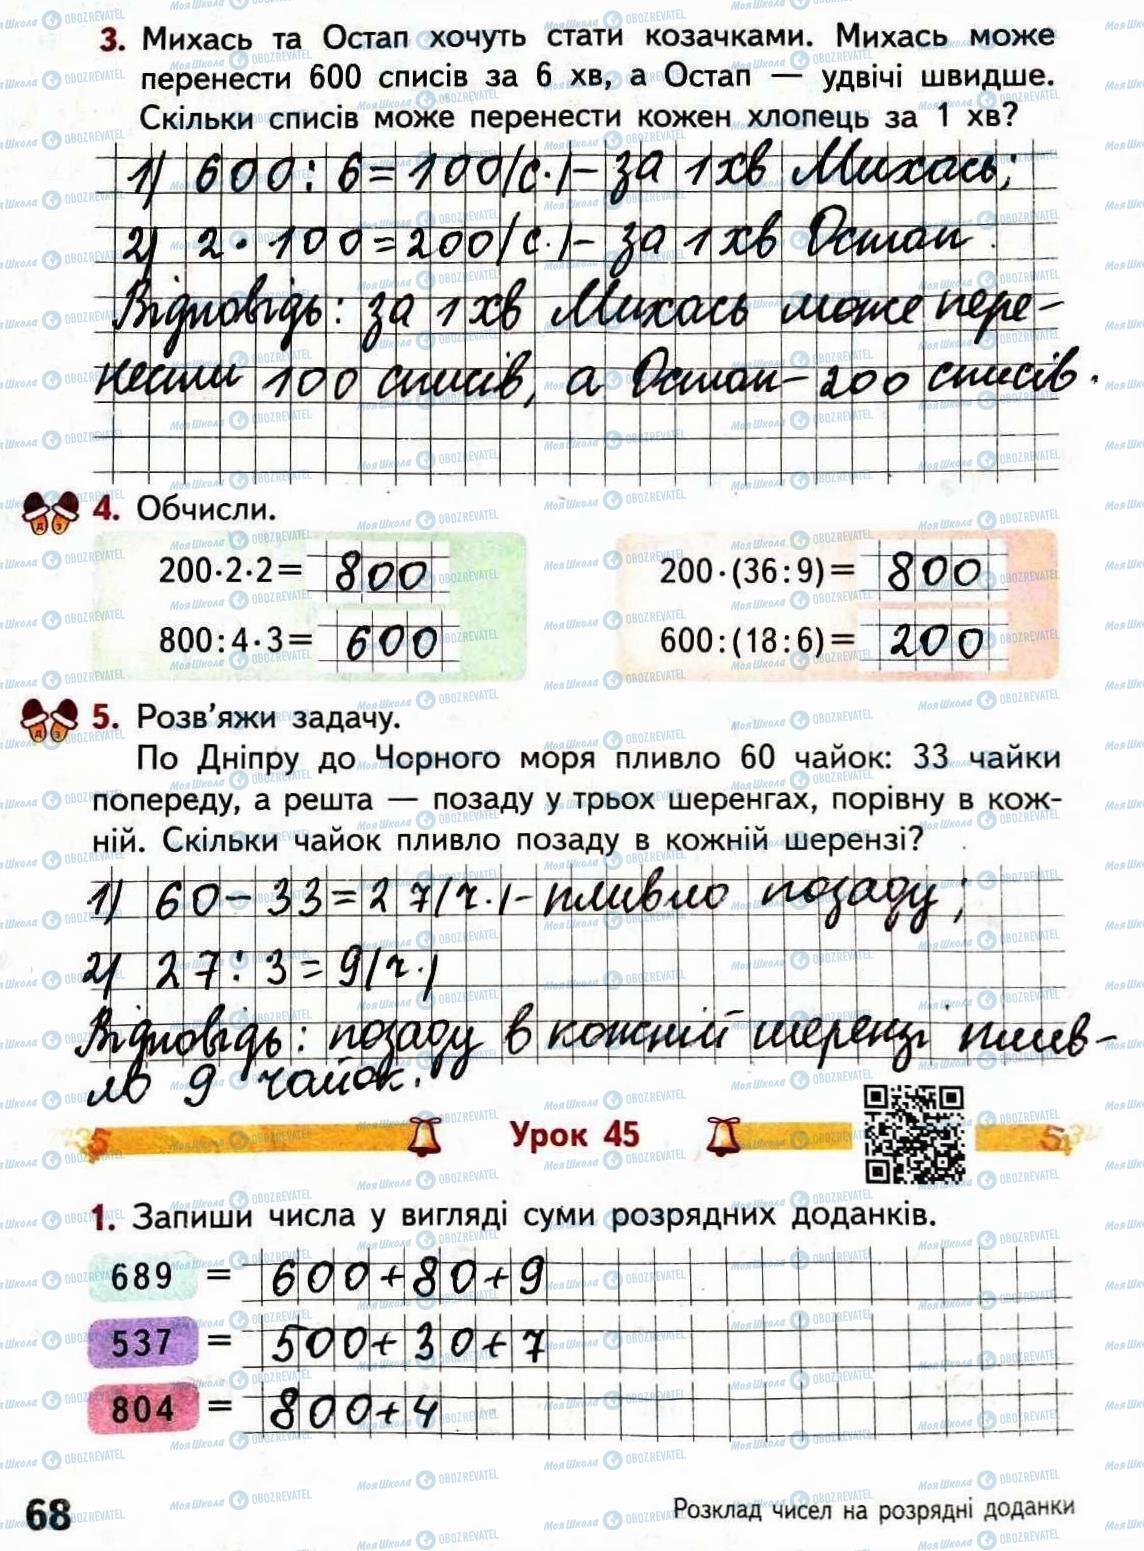 3. Михась та Остап хочуть стати козачками. Михась може
перенести 600 списів за 6 хв, а Остап — удвічі швидше.
Скільки списів може перенести кожен хлопець за 1 хв?
1) 600 : 6 = 100 (с.) – за 1 хв Михась;
2) 2 · 100 = 200 (с.) – за 1 хв Остап.
Відповідь: за 1 хв Михась може пере-
нести 100 списів, а Остап – 200 списів.
4. Обчисли.
200·2·2= 800
200·(36:9)= 800
800:4·3= 600
600:(18:6)= 200
5. Розв'яжи задачу.
По Дніпру до Чорного моря пливло 60 чайок: 33 чайки
попереду, а решта — позаду у трьох шеренгах, порівну в кож-
ній. Скільки чайок пливло позаду в кожній шерензі?
1) 60 – 33 = 27 (ч.) – пливло позаду;
2) 27 : 3 = 9 (ч.)
Відповідь: позаду в кожній шерензі плив-
ло 9 чайок.
Урок 45
1. Запиши числа у вигляді суми розрядних доданків.
689 = 600+80+9
537 = 500+30+7
804 = 800+4
68
Розклад чисел на розрядні доданки
Моя Школа OBOZREVATEL